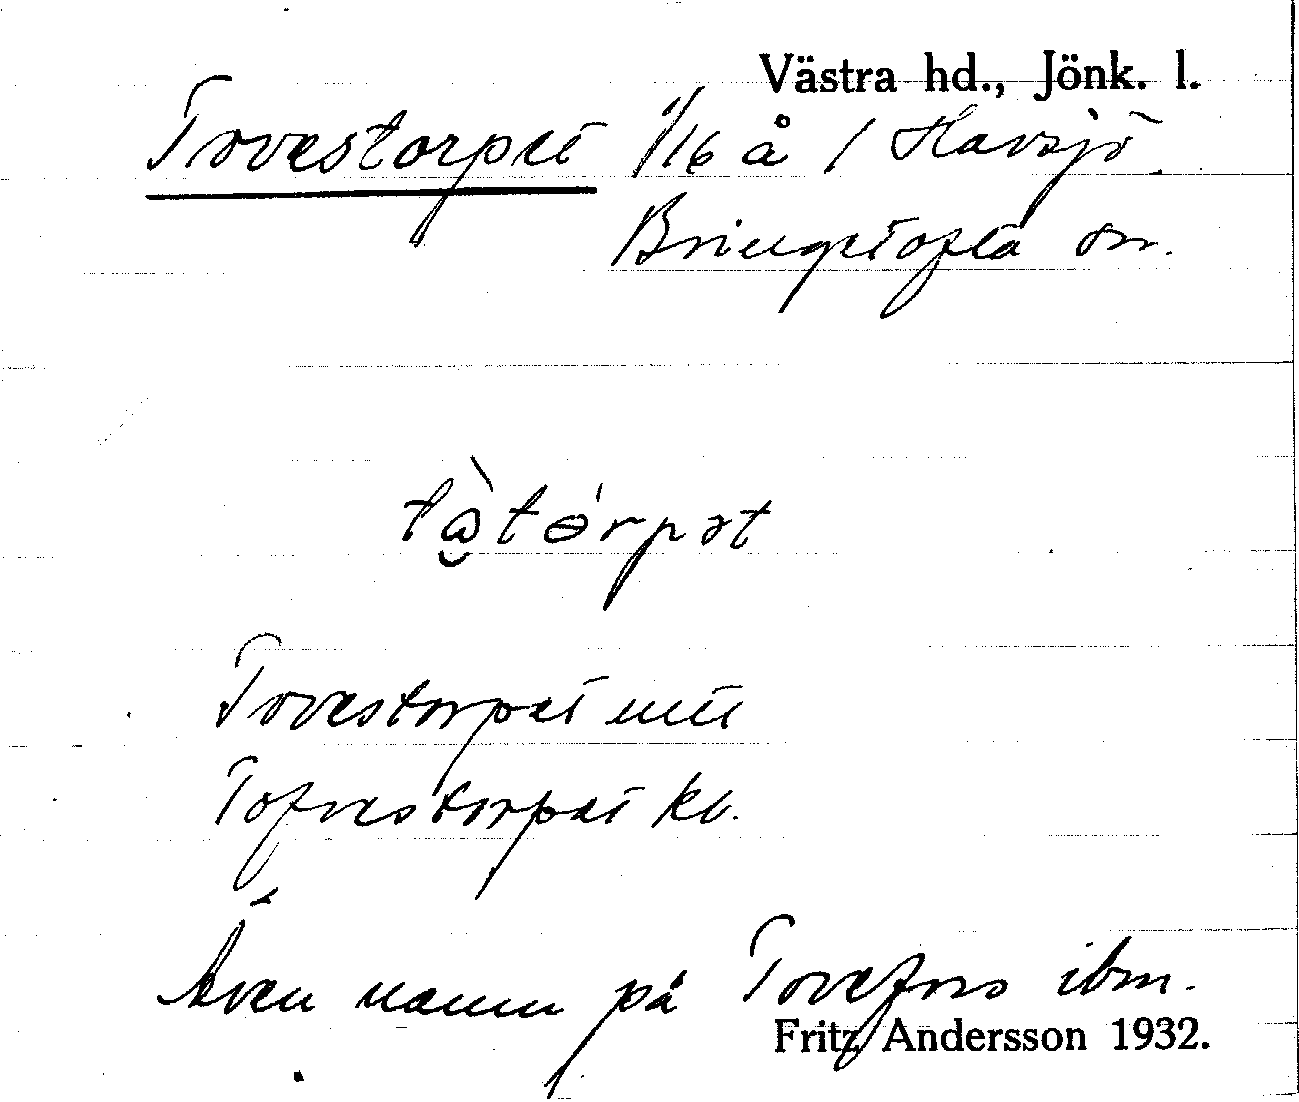 Västra hd., Jönk. l.
Tovestorpet 1/16 å 1 Havsjö
Bringetofta sn.
tàtórpət
Tovestorpet
Tofvestorpet kb.
Även namn på Tovefors ibm.
Fritz Andersson 1932.